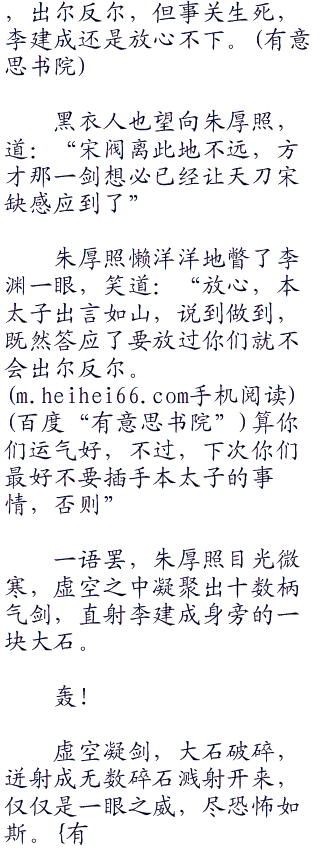 ，出尔反尔，但事关生死，
李建成还是放心不下。(有意
思书院)
黑衣人也望向朱厚照，
道：“宋阀离此地不远，方
才那一剑想必已经让天刀宋
缺感应到了”
朱厚照懒洋洋地瞥了李
渊一眼，笑道：“放心，本
太子出言如山，说到做到，
既然答应了要放过你们就不
会出尔反尔。
(m.heihei66.com手机阅读)
(百度“有意思书院”)算你
们运气好，不过，下次你们
最好不要插手本太子的事
情，否则”
一语罢，朱厚照目光微
寒，虚空之中凝聚出十数柄
气剑，直射李建成身旁的一
块大石。
轰！
虚空凝剑，大石破碎，
迸射成无数碎石溅射开来，
仅仅是一眼之威，尽恐怖如
斯。{有